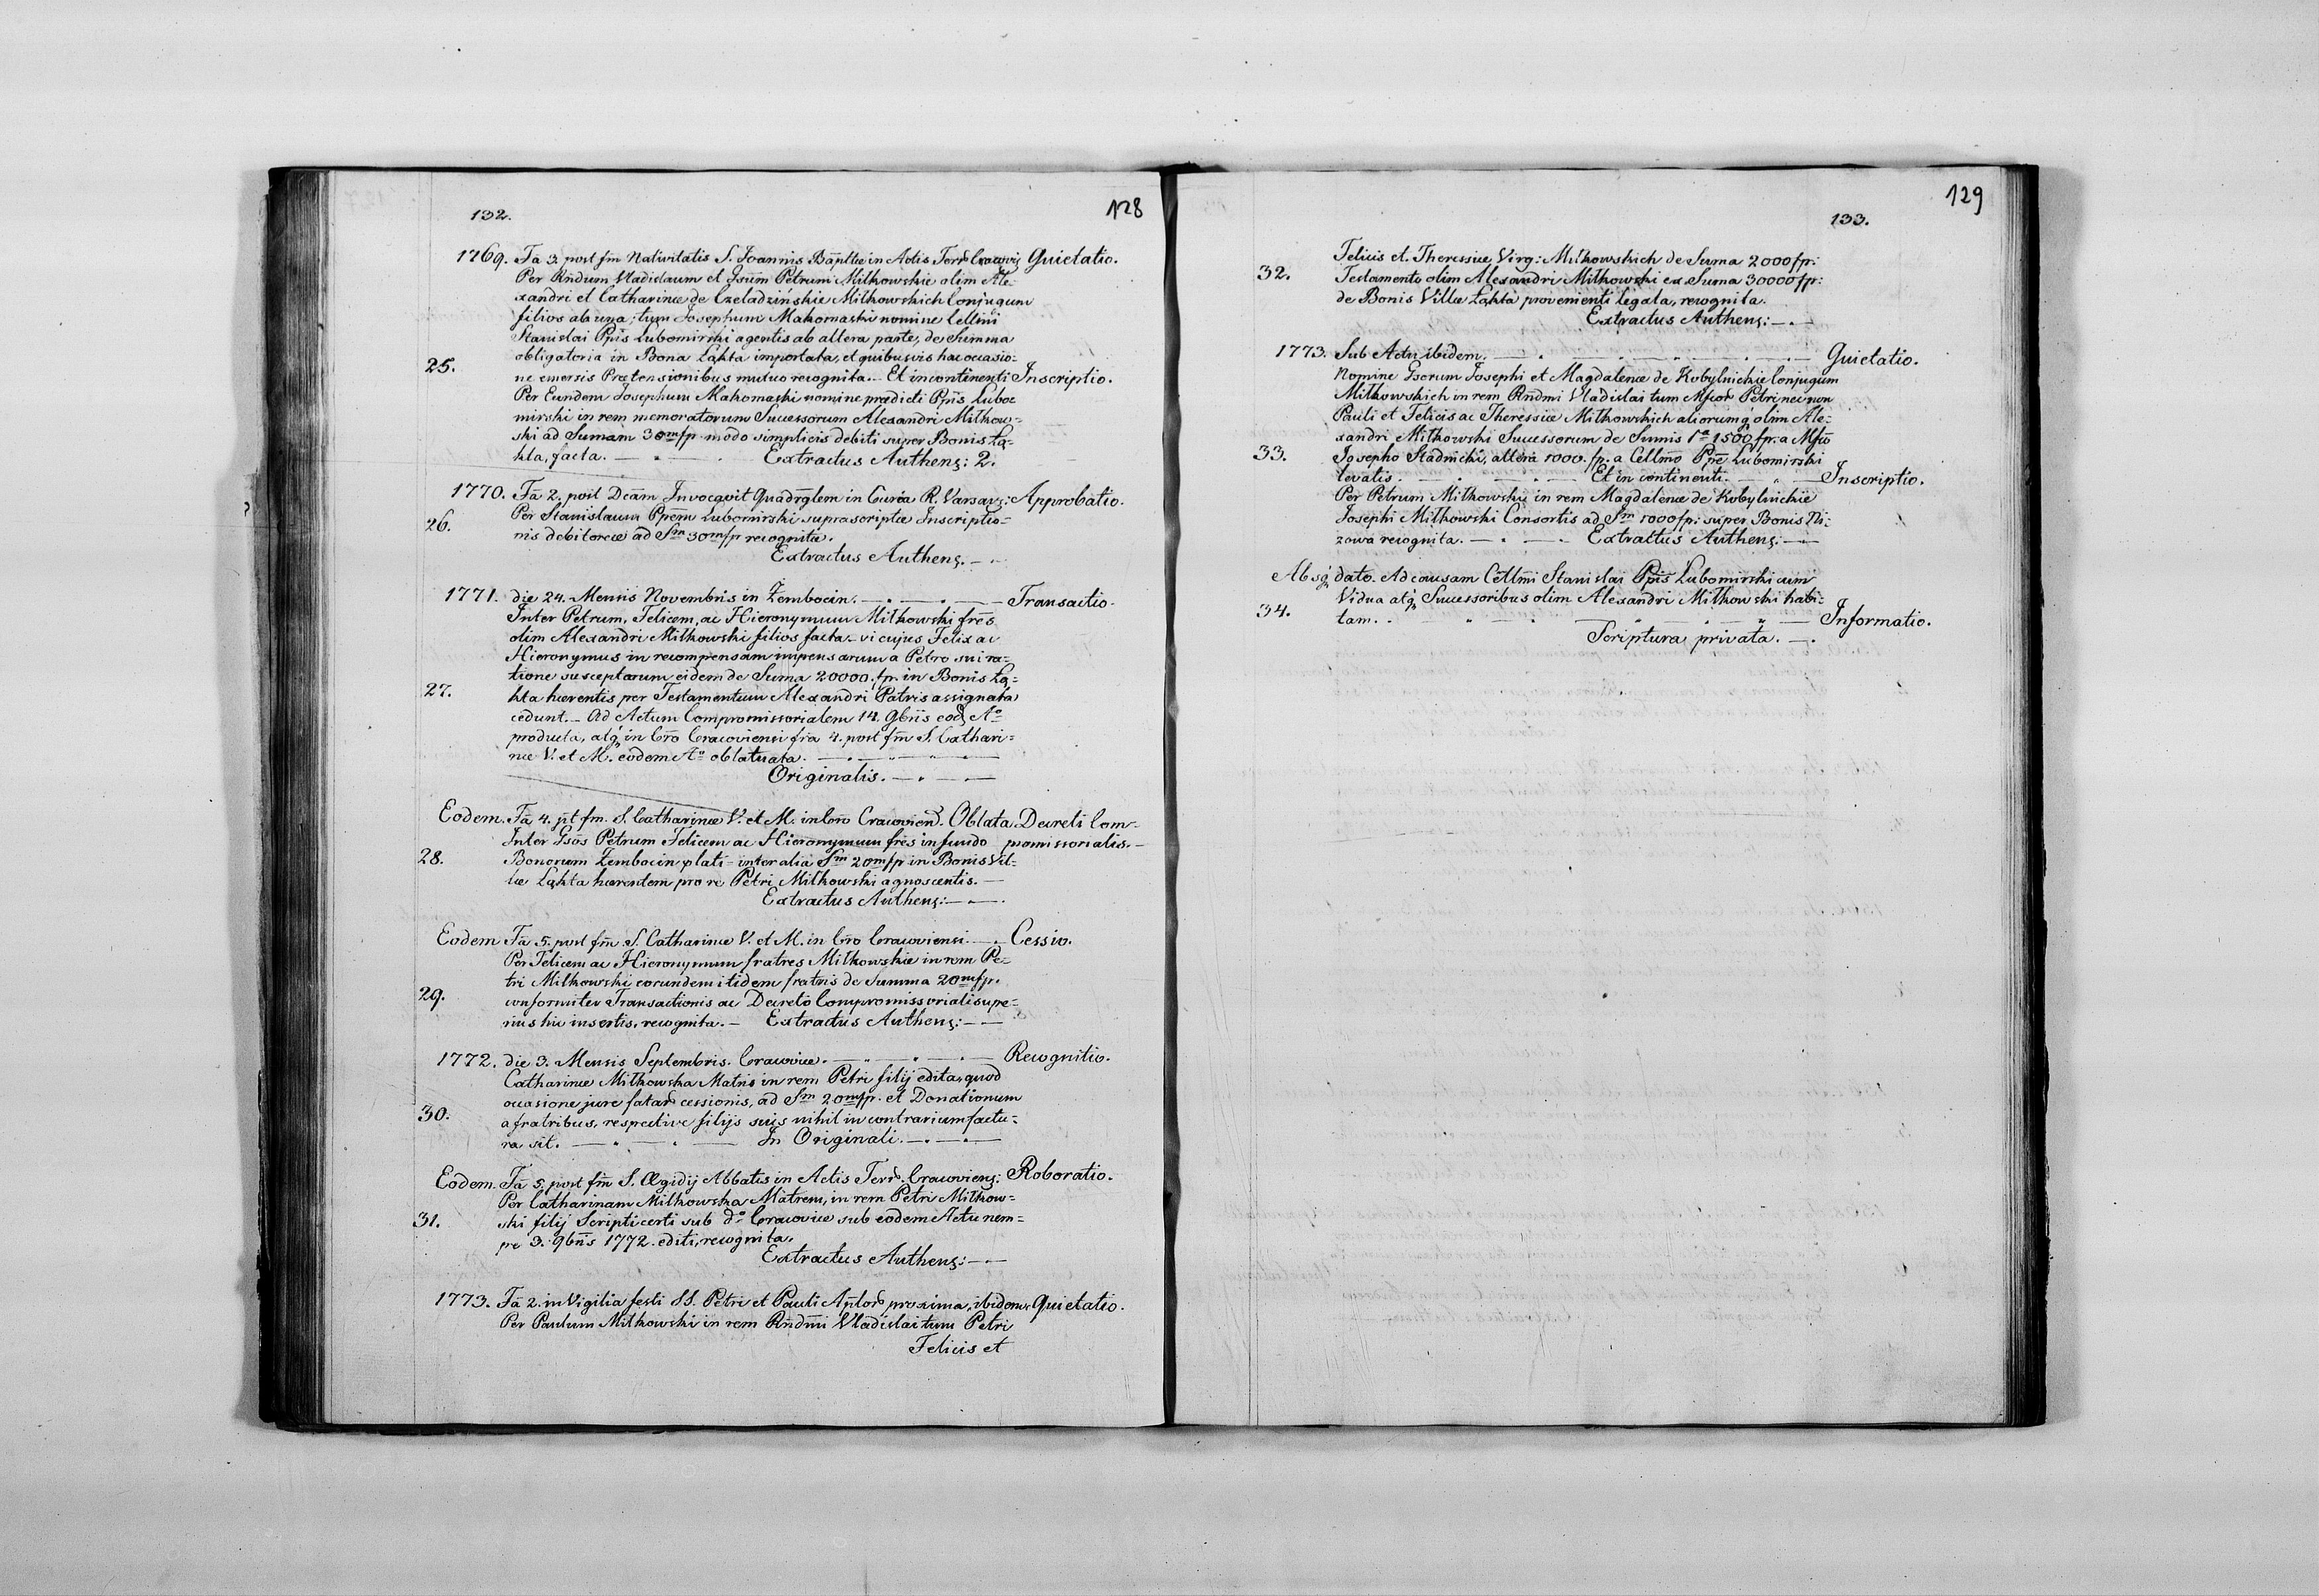 132.
128
1769. Fa 3. post fm Nativitatis S. Joannis Bāptæ in Actis Terr Cracovis Quietatio.
Per Rndum Vladislaum et Gsum Petrum Miłkowskie olim Ale-
xandri et Catharinæ de Czeladzińskie Miłkowskich Conjugum
filios ab una; tum Josephum Makomaski nomine Cellmi
Stanislai Ppis Lubomirski agentis ab altera parte, de Summa
obligatoria in Bona Łąkta importata, et quibusvis hac occasio-
25.
ne emersis Prætensionibus mutuo recognita.- Et incontinenti Inscriptio.
Per Eundem Josephum Makomaski nomine prædicti Ppis Lubo-
mirski in rem memoratorum Successorum Alexandri Miłkow-
ski ad Sumam 30m/fp modo simplicis debiti super Bonis Łą-
kta, facta. Extractus Authens: 2.
1770. Fa 2. post Dcām Invocavit Quadrglem in Curia R. Varsavs: Approbatio.
Per Stanislaum Ppem Lubomirski suprascriptæ Inscriptio-
26.
nis debitoreæ ad Sm 30m/fp recognita.
Extractus Authens.
1771. die 24. Mensis Novembris in Zembocin. Transactio.
Inter Petrum, Felicem, ac Hieronymum Miłkowski fres
olim Alexandri Miłkowski filios facta. vi cujus Felix ac
Hieronymus in recompensam impensarum a Petro sui ra-
tione susceptarum eidem de Suma 20000. fp. in Bonis Łą-
27.
kta hærentis per Testamentum Alexandri Patris assignata
cedunt. Ad Actum Compromissorialem 14. 9bris eod Ao
producta, atq in Cro Cracoviensi fria 4. post fm S. Cathari-
næ V. et M. eodem Ao oblatuata.
Originalis.
Eodem. Fa 4. pt fm. S. Catharinæ V. et M. in Cro Cracovien. Oblata Decreti Com-
Inter Gsos Petrum Felicem ac Hieronymum fres in fundo promissorialis.
28.
Bonorum Zembocin plati- inter alia Sm 20m/fp in Bonis Vil-
læ Łąkta hærentem pro re Petri Miłkowski agnoscentis.
Extractus Authens:
Eodem Fa 5. post fm S. Catharinæ V. et M. in Cro Cracoviensi. Cessio.
Per Felicem ac Hieronymum fratres Miłkowskie in rem Pe-
tri Miłkowski eorundem itidem fratris de Summa 20m/fp.
29.
conformiter Transactionis ac Decreto Compromissoriali supe-
rius hic insertis, recognita. Extractus Authens:
1772. die 3. Mensis Septembris. Cracoviæ. Recognitio.
Catharinæ Miłkowska Matris in rem Petri filij edita, quod
occasione jure fatar cessionis, ad Sm 20m/fp. et Donationum
30.
a fratribus, respective filijs suis nihil in contrarium factu-
ra sit. In Originali.
Eodem. Fa 5. post fm S. Ægidij Abbatis in Actis Terr. Cracoviens: Roboratio.
Per Catharinam Miłkowska Matrem, in rem Petri Miłkow-
31.
ski filij Scripti certi sub do Cracoviæ sub eodem Actu nem-
pe 3. 9bris 1772. editi, recognita.
Extractus Authens:
1773. Fa 2. in Vigilia festi SS. Petri et Pauli Aplor proxima, ibidem. Quietatio.
Per Paulum Miłkowski in rem Rndmi Vladislai tum Petri
Felicis et
129
133.
Felicis et. Theressiæ Virg: Miłkowskich de Suma 2000 fp:
32.
Testamento olim Alexandri Miłkowski ex Suma 30000 fp:
de Bonis Villæ Łąkta provenienti legata, recognita.
Extractus Authens:
1773. Sub Actu ibidem. Quietatio.
Nomine Gsorum Josephi et Magdalenæ de Kobylnickie Conjugum
Miłkowskich in rem Rndmi Vladislai tum Mfcor Petri necnon
Pauli et Felicis ac Theressiæ Miłkowskich aliorumq olim Ale-
xandri Miłkowski Successorum de Sumis 1a 1500 fp. a Mfco
33.
Josepho Stadnicki, altera 1000. fp. a Cellmo Ppe Lubomirski
levatis. Et in continenti. Inscriptio.
Per Petrum Miłkowski in rem Magdalenæ de Kobylnickie
Josephi Miłkowski Consortis ad Sm 1000 fp: super Bonis Ni-
zowa recognita. Extractus Authens:
Absq dato. Ad causam Cellmi Stanislai Ppis Lubomirski cum
Vidua atq Successoribus olim Alexandri Miłkowski habi-
34.
tam. Informatio.
Scriptura privata.